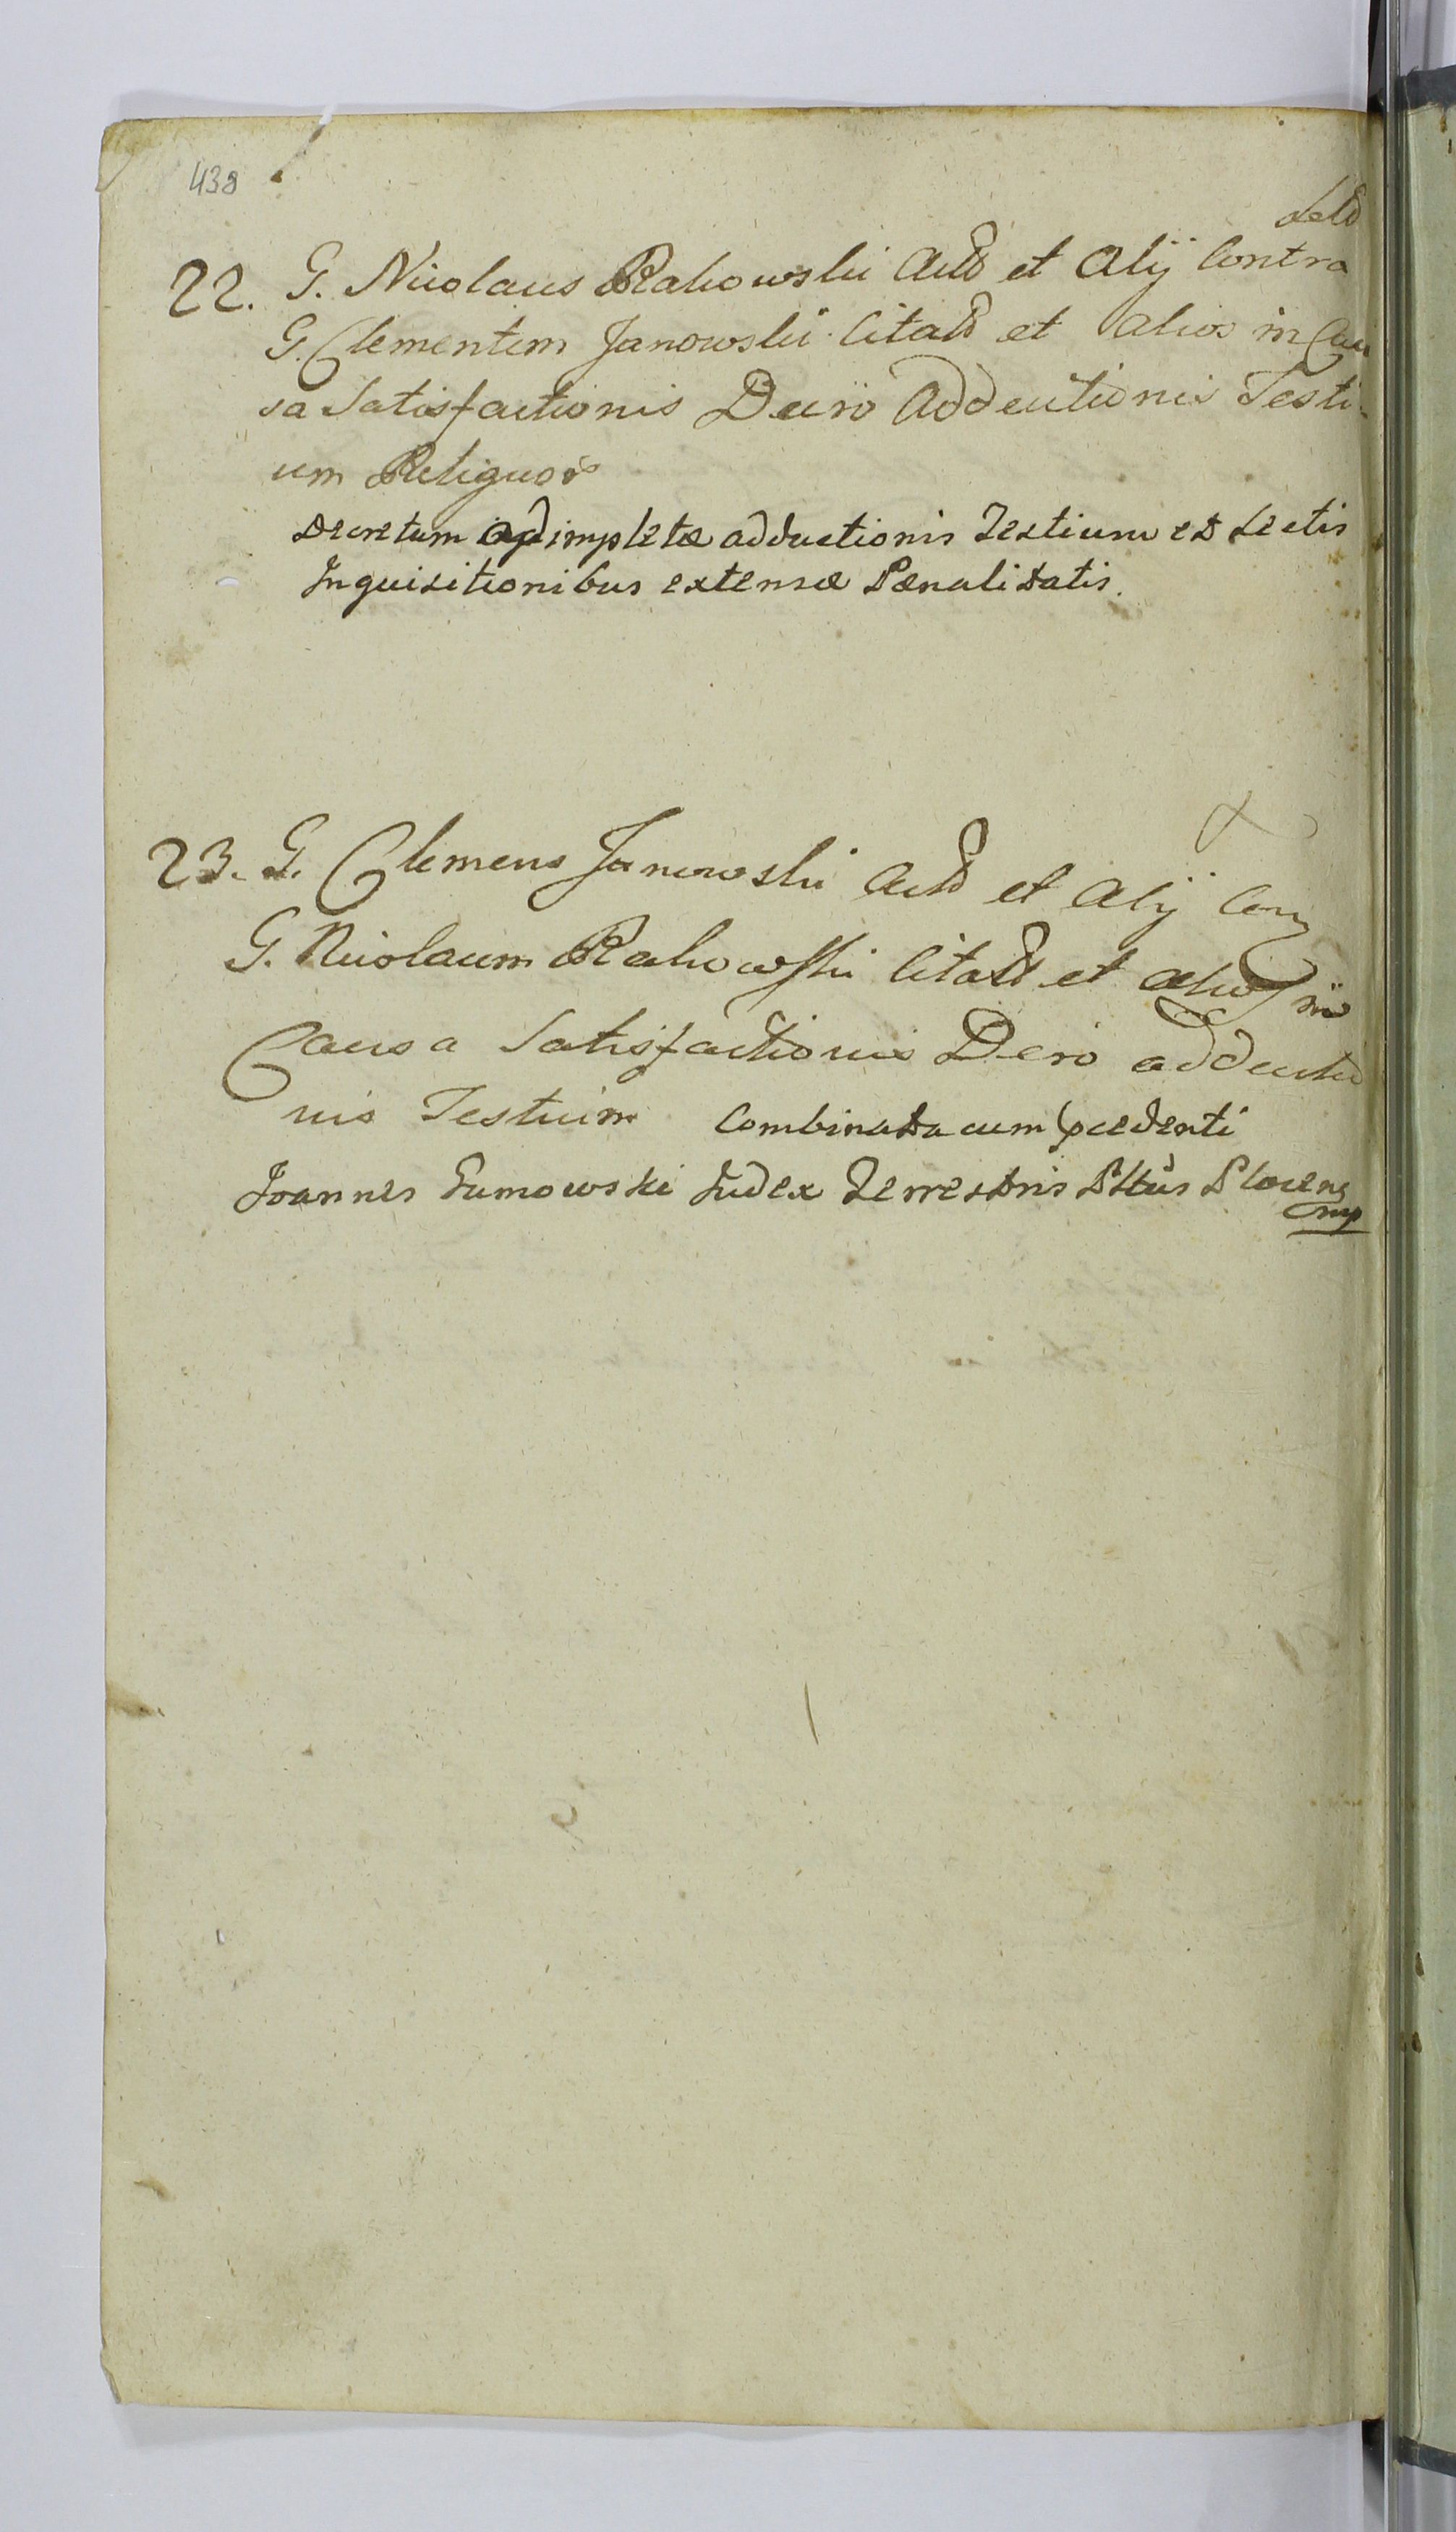 438
22. G. Nicolaus Rakowski Act et Alij Contra
G. Clementem Janowski Citat et Alios in Cau
sa Satisfactionis Decro Adductionis Testi-
um Reliquor
Decretum adimpletæ adductionis Testium et Lectis
Inquisitionibus extensæ Pænalitatis.
23. G. Clemens Janowski Act et Alij Con
G. Nicolaum Rakowski Citat et alios in
Causa Satisfactionis Decro adductio
nis Testium Combinata cum pcedenti
Joannes Gumowski Judex Terrestris Pltûs Plocens
mp